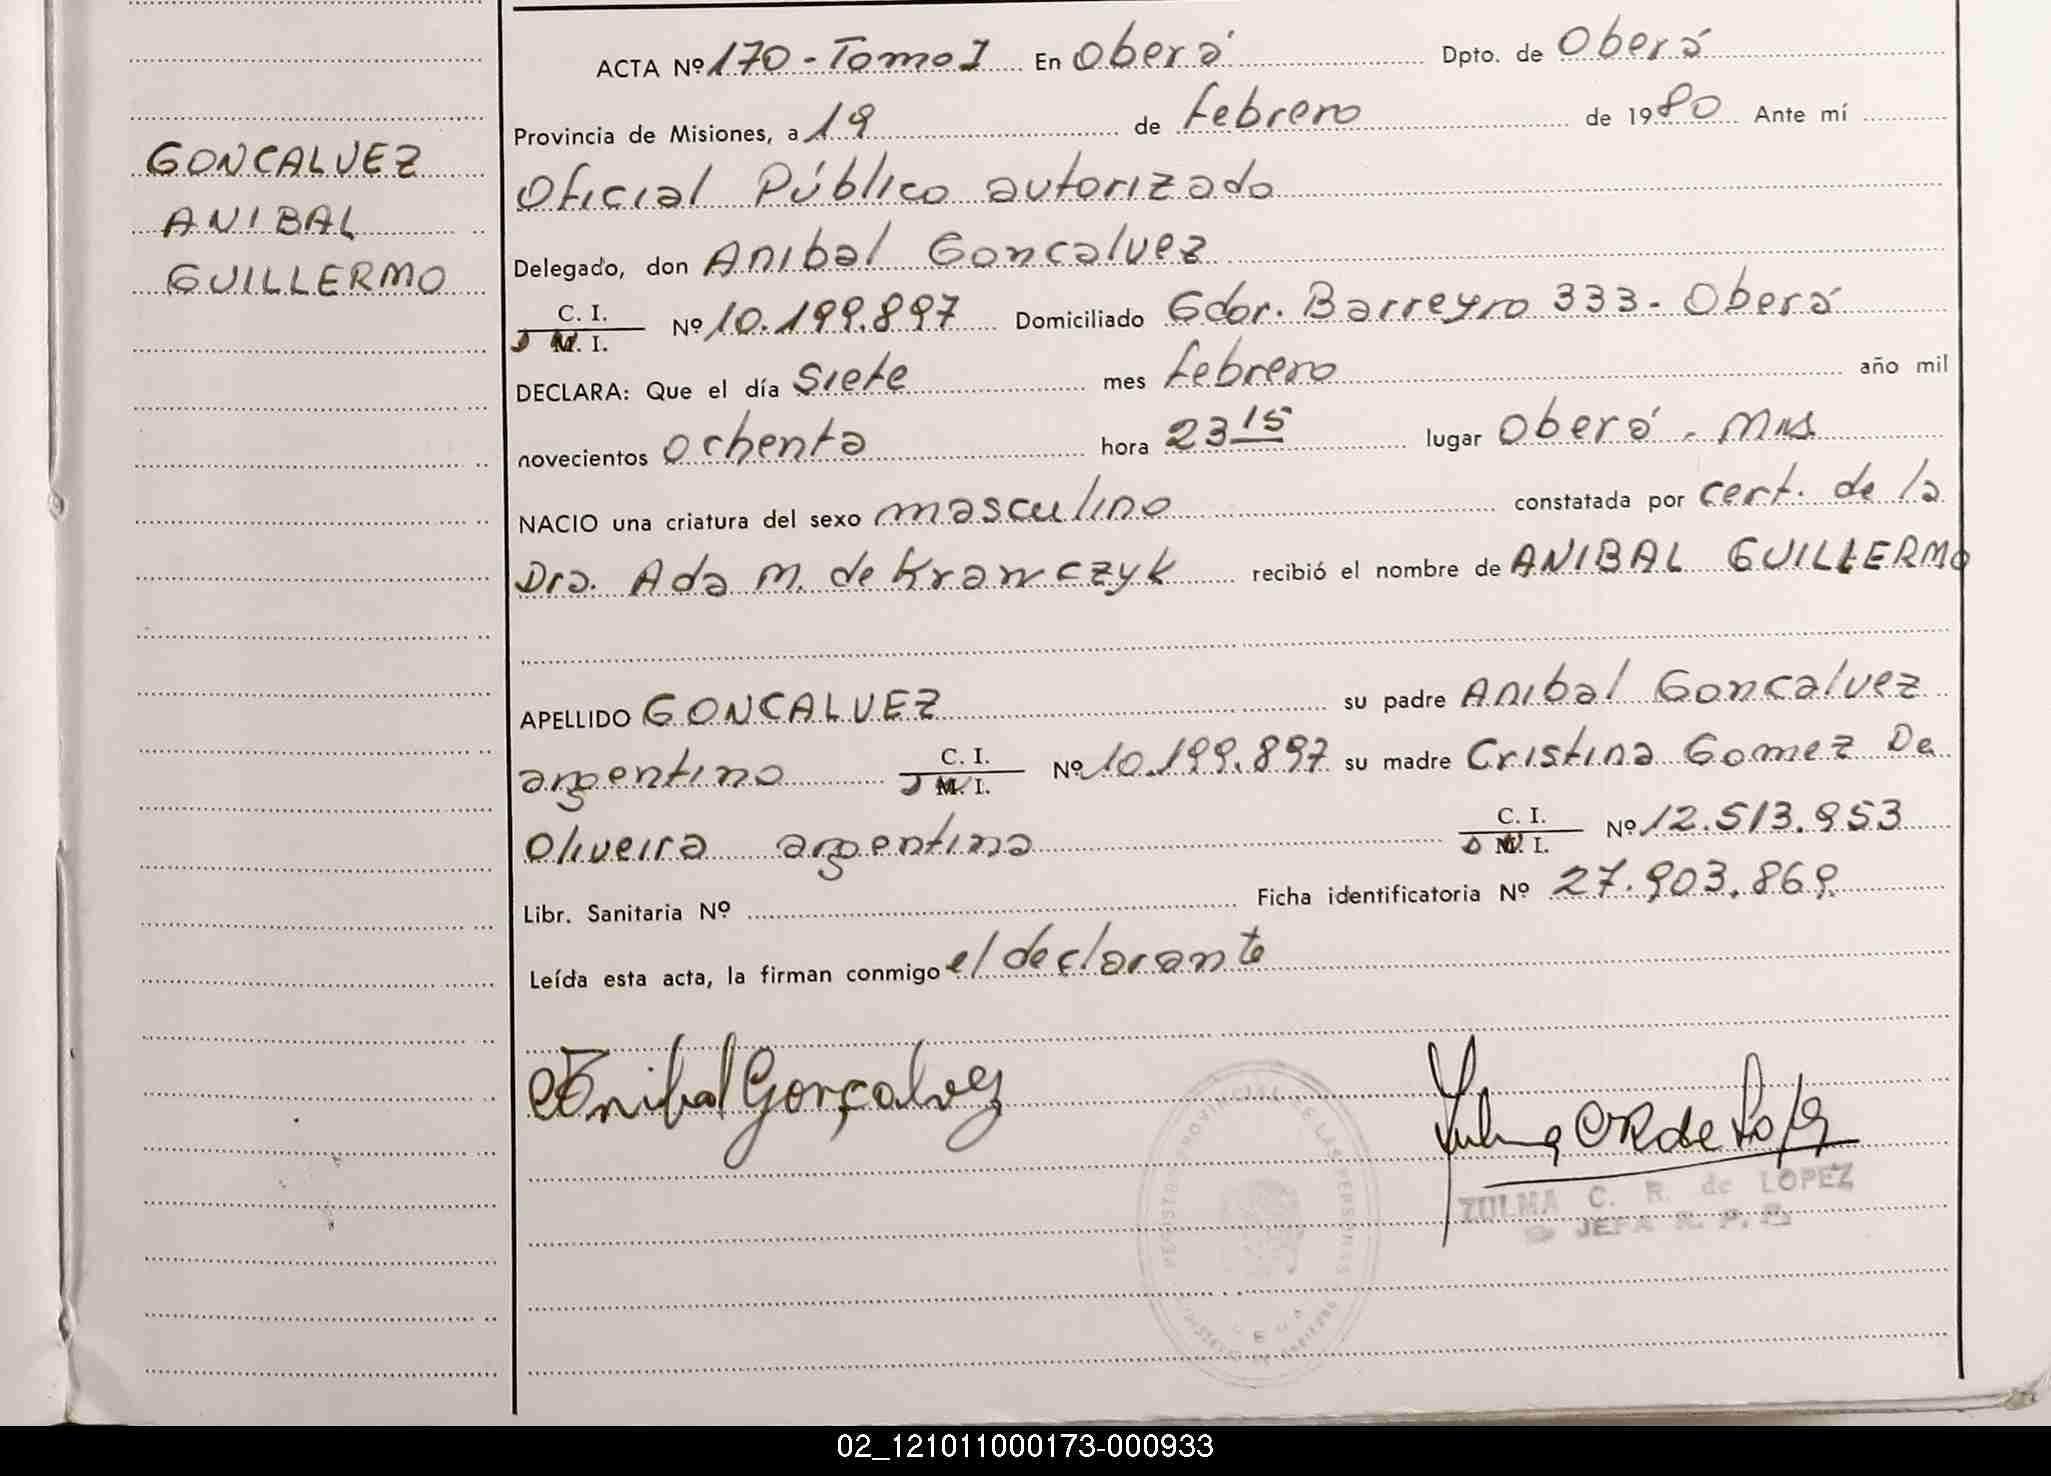 GONCALVEZ
ANIBAL
GUILLERMO
ACTA Nº 170 - Tomo I En Oberá Dpto. de Oberá
Provincia de Misiones, a 19 de febrero de 1980 Ante mí
Oficial Público autorizado
Delegado, don Anibal Goncalvez
C. I.
D M. I. Nº 10.199.897 Domiciliado Gdor. Barreyro 333 - Oberá
DECLARA: Que el día siete mes febrero año mil
novecientos ochenta hora 23 15 lugar Oberá - Mns
NACIO una criatura del sexo masculino constatada por cert. de la
Dra. Ada M. de Krawczyk recibió el nombre de ANIBAL GUILLERMO
APELLIDO GONCALVEZ su padre Anibal Goncalvez
argentino C. I.
D M. I. Nº 10.199.897 su madre Cristina Gomez De
Oliveira argentina C. I.
D M. I. Nº 12.513.953
Libr. Sanitaria Nº Ficha identificatoria Nº 27.903.869
Leída esta acta, la firman conmigo el declarante
Anibal Gonçalvez
Zulma C R de López
ZULMA C. R. de LOPEZ
JEFA R. P. P.
REGISTRO PROVINCIAL DE LAS PERSONAS
02_121011000173-000933